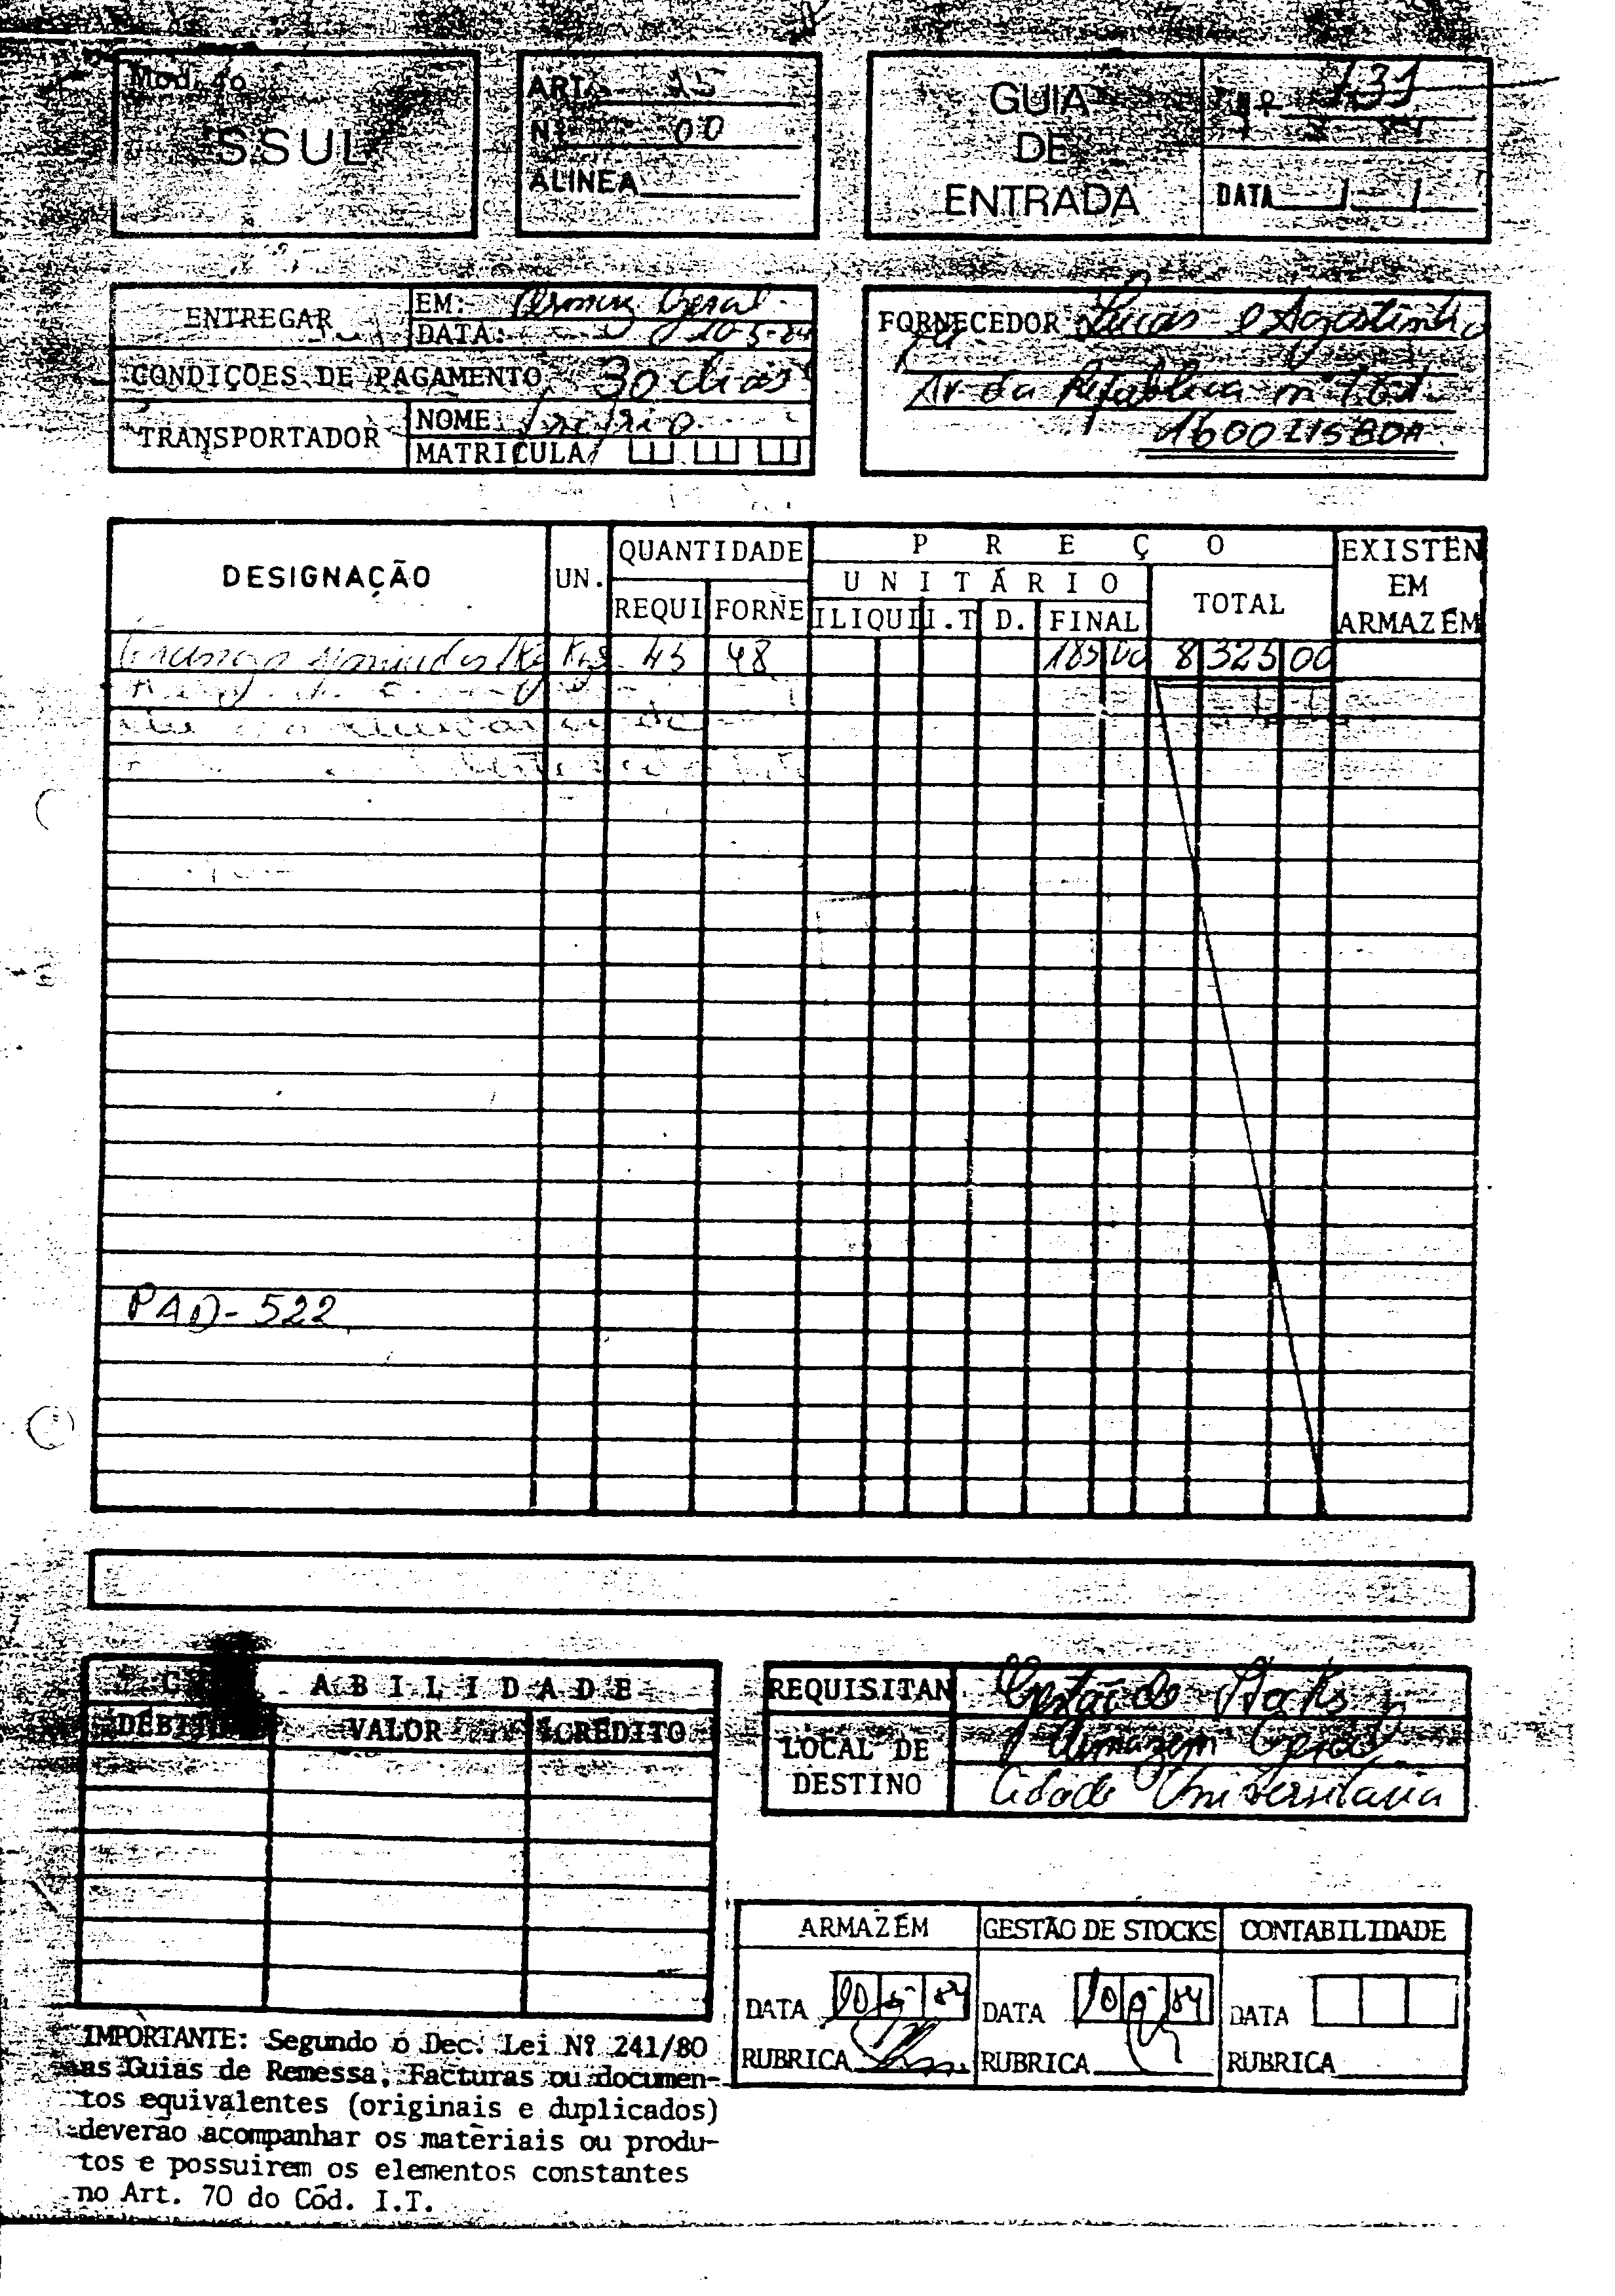 Mod. 40
SSUL
ART. 15
Nº 00
ALINEA
GUIA
DE
ENTRADA
Nº 131
DATA / /
ENTREGAR
EM: Armazem Geral
DATA: 10-5-84
CONDIÇOES DE PAGAMENTO 30 dias
TRANSPORTADOR
NOME
MATRICULA
FORNECEDOR Lucas e Agostinho
Av. da República nº
1600 LISBOA
DESIGNAÇÃO
UN.
QUANTIDADE
REQUI
FORNE
PREÇO
UNITÁRIO
ILIQUI
I.T
D.
FINAL
TOTAL
EXISTEN
EM
ARMAZÉM
Kgs 45 48 185 00 8 325 00
PAD-522
ABILIDADE
VALOR
CRÉDITO
REQUISITAN
Gestão de Stocks
LOCAL DE
DESTINO
Armazem Geral
Cidade Universitaria
ARMAZÉM
GESTÃO DE STOCKS
CONTABILIDADE
DATA 10 5 84
DATA 10 5 84
DATA
RUBRICA
RUBRICA
RUBRICA
IMPORTANTE: Segundo o Dec. Lei Nº 241/80
as Guias de Remessa, Facturas ou documen-
tos equivalentes (originais e duplicados)
deverão acompanhar os materiais ou produ-
tos e possuirem os elementos constantes
no Art. 70 do Cód. I.T.